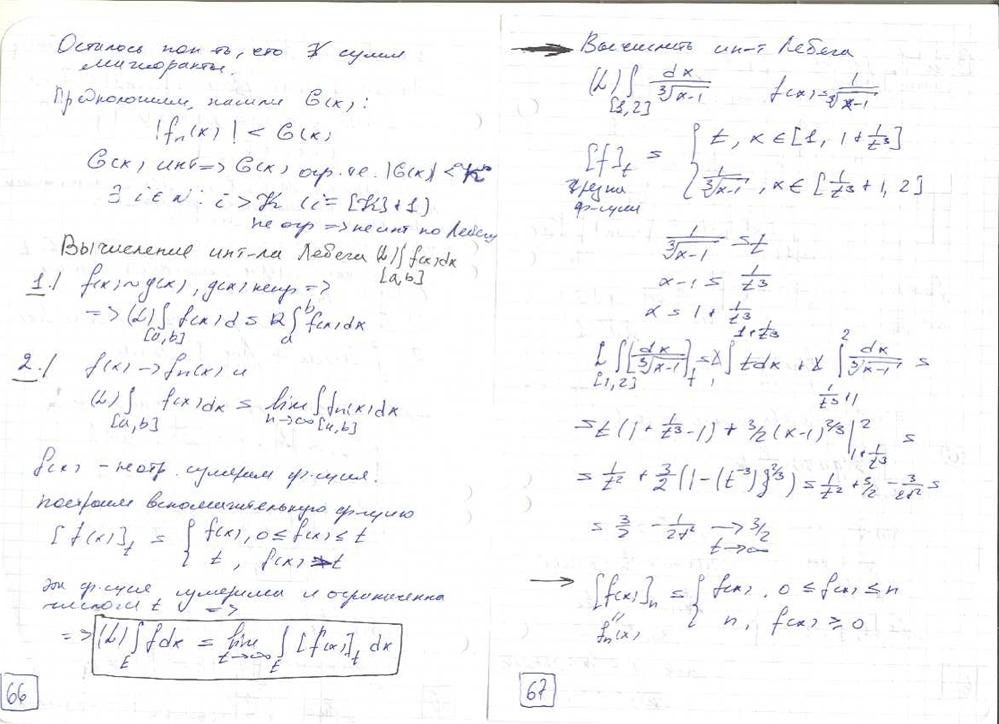 Осталось пок-ть, что ∄ сумм
мажоранты.
Предположим, нашли G(x):
|fₙ(x)| < G(x)
G(x) инт => G(x) огр. т.е. |G(x)| < K
∃ i ∈ N: i > K (i = [K]+1)
не огр => не инт по Лебегу
Вычисление инт-ла Лебега (L)∫ f(x)dx
[a,b]
1.) f(x) ~ g(x), g(x) непр =>
=> (L)∫ f(x)d = R∫ f(x)dx
[a,b] a b
2.) f(x) -> fₙ(x) и
(L)∫ f(x)dx = lim ∫ fₙ(x)dx
[a,b] n→∞ [a,b]
f(x) - неотр. сумерим ф-ция.
построим вспомагительную ф-цию
[f(x)]ₜ = { f(x), 0 ≤ f(x) ≤ t
t, f(x) > t
эта ф-ция сумерима и ограниченна
числом t =>
=> (L)∫ fdx = lim ∫ [f(x)]ₜ dx
E t→∞ E
66
→ Вычислить ин-т Лебега
(L)∫ dx/∛(x-1) f(x) = 1/∛(x-1)
[1,2]
[f]ₜ = { t, x ∈ [1, 1 + 1/t³]
срезка
ф-ции
1/∛(x-1), x ∈ [1/t³ + 1, 2]
1/∛(x-1) = t
x-1 = 1/t³
x = 1 + 1/t³
L∫[dx/∛(x-1)]ₜ = ∫₁^(1+1/t³) tdx + ∫_(1/t³+1)^2 dx/∛(x-1) =
[1,2]
= t(1 + 1/t³ - 1) + 3/2 (x-1)^(2/3) |²_(1+1/t³) =
= 1/t² + 3/2 (1 - (t⁻³)^(2/3)) = 1/t² + 3/2 - 3/2t² =
= 3/2 - 1/2t² → 3/2
t→∞
→ [f(x)]ₙ = { f(x), 0 ≤ f(x) ≤ n
n, f(x) ≥ 0
"
fₙ(x)
67